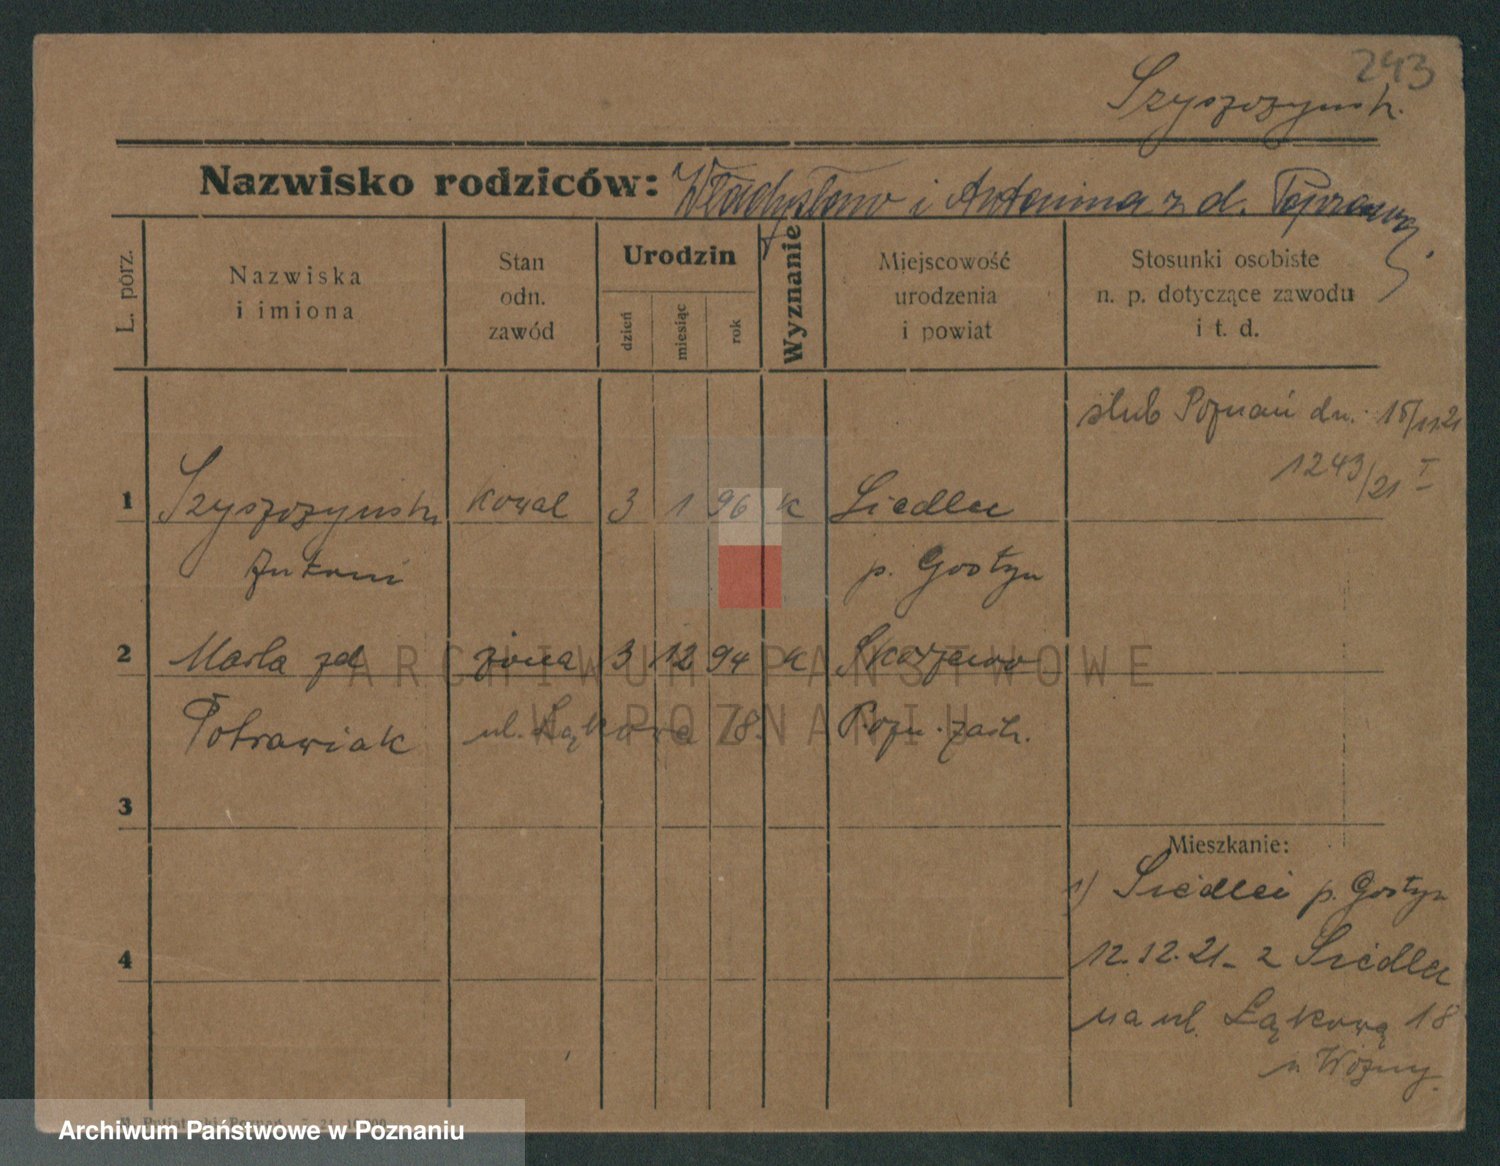 243
Szyszczyńsk.
Nazwisko rodziców: Władysław i Antonina z d.
L. porz.
Nazwiska
i imiona
Stan
odn.
zawód
Urodzin
dzień
miesiąc
rok
Wyznanie
Miejscowość
urodzenia
i powiat
Stosunki osobiste
n. p. dotyczące zawodu
i t. d.
ślub Poznań dn. 15/11.21
1243/21 I
1 kowal 3 1 96 k Siedlec
Antoni p. Gostyn
2 Marła zd żona 3 12 94 k
Potrawiak ul. Łąkowa 18. Pozn. zach.
3
4
Mieszkanie:
1) Siedlec p. Gostyn
12.12.21 - z Siedlec
na ul. Łąkową 18
ARCHIWUM PAŃSTWOWE
W POZNANIU
Archiwum Państwowe w Poznaniu